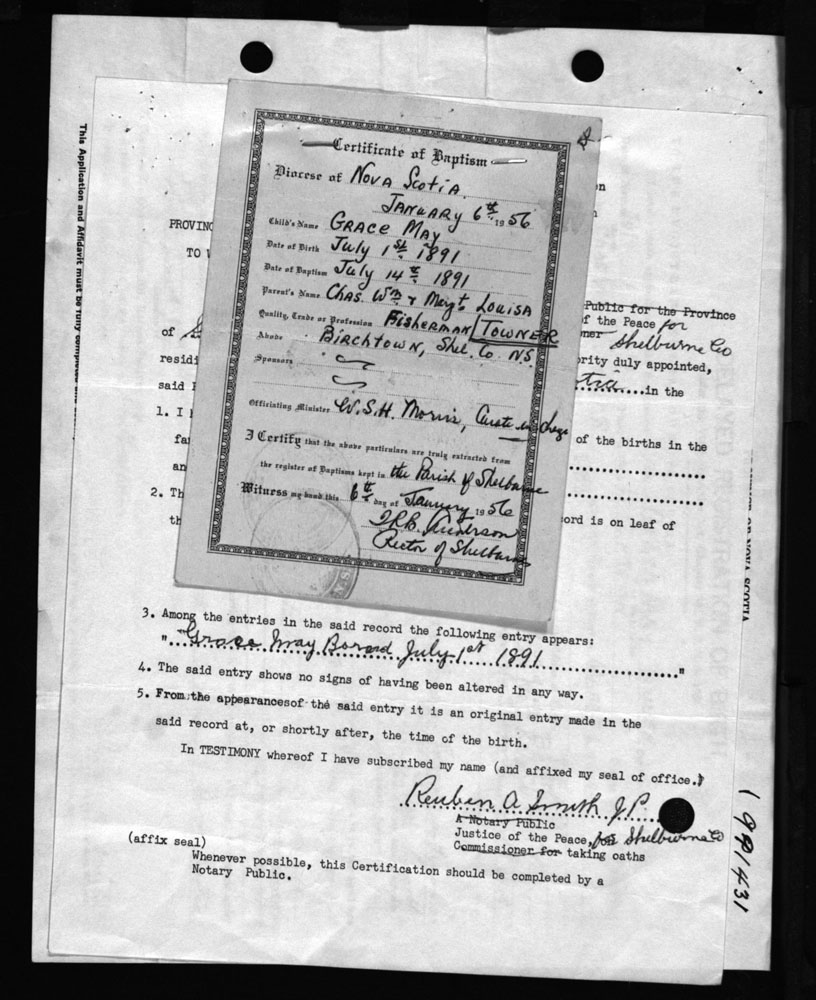 This Application and Affidavit must be fully
Certificate of Baptism
Diocese of Nova Scotia
January 6th 1956
Child's Name Grace May
Date of Birth July 1st 1891
Date of Baptism July 14th 1891
Parent's Name Chas. Wm & Margt. Louisa
Quality, Trade or Profession Fisherman Towner
Abode Birchtown, Shel. Co. N.S.
Sponsors
Officiating Minister W.S.H. Morris, Curate in charge
I Certify that the above particulars are truly extracted from
the register of Baptisms kept in the Parish of Shelburne
Witness my hand this 6th day of January 1956
Anderson
Rector of Shelburne
PROVINC
TO W
Public for the Province
f the Peace for
mer Shelburne Co
of
residi
ority duly appointed,
said
in the
1. I
of the births in the
fa
an
2. Th
cord is on leaf of
th
3. Among the entries in the said record the following entry appears:
"Grace May Borned July 1st 1891"
4. The said entry shows no signs of having been altered in any way.
5. From the appearances of the said entry it is an original entry made in the
said record at, or shortly after, the time of the birth.
In TESTIMONY whereof I have subscribed my name (and affixed my seal of office.)
Reuben A. Smith J.P.
A Notary Public
Justice of the Peace, for Shelburne Co
Commissioner for taking oaths
(affix seal)
Whenever possible, this Certification should be completed by a
Notary Public.
1991431